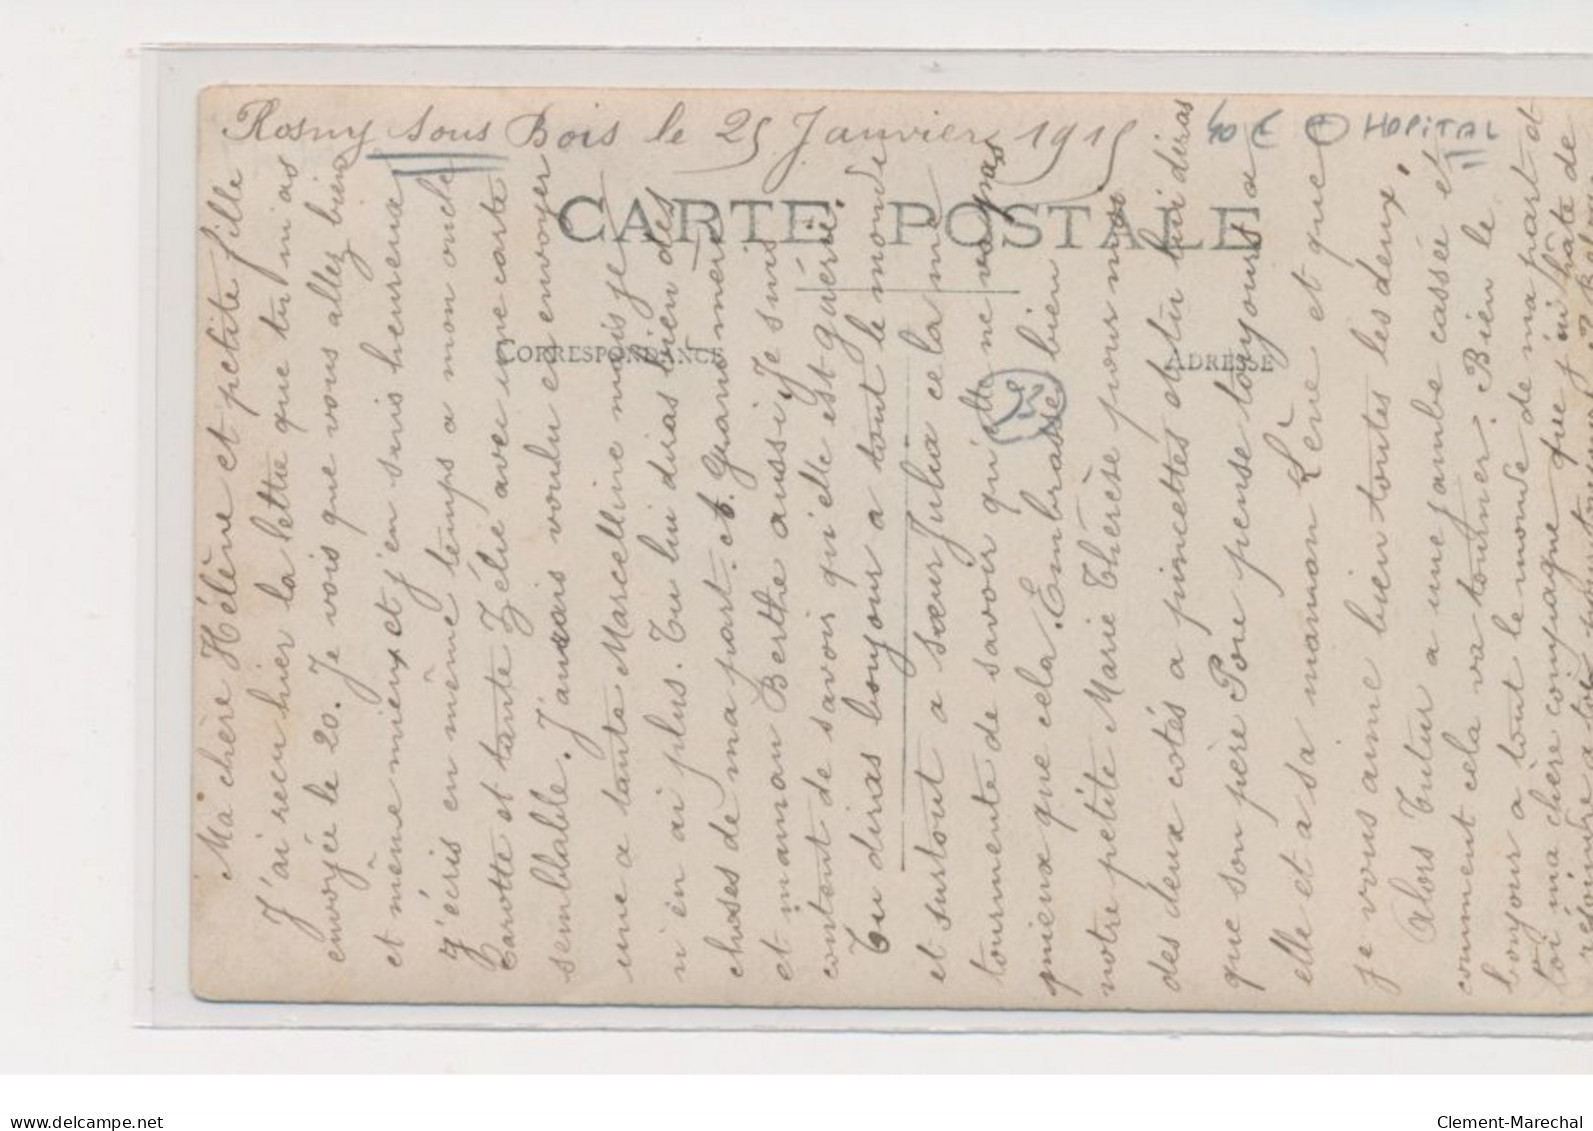 Rosny sous Bois le 25 Janvier 1915
40 € HOPITAL
CARTE POSTALE
CORRESPONDANCE
ADRESSE
93
Ma chère Hélène et petite fille
J'ai recu hier la lettre que tu m'as
envoyée le 20. Je vois que vous allez bien
et même mieux et j'en suis heureux
J'écris en même temps a mon oncle
Carotte et tante Zélie avec une carte
semblable. J'aurais voulu en envoyer
une a tante Marcelline mais je
n'en ai plus. Tu lui diras bien des
choses de ma part. et Grand mère
et maman Berthe aussi, Je suis
content de savoir qu'elle est guérie.
Tu diras bonjour a tout le monde
et surtout a sœur Julia cela me
tourmente de savoir qu'elle ne va pas
mieux que cela. Embrasse bien
notre petite Marie Thérèse pour moi
des deux cotés a pincettes et tu lui diras
que son père Poupe pense toujours a
elle et a sa maman Lène et que
je vous aime bien toutes les deux,
Alors Tutur a une jambe cassée et
comment cela va tourner. Bien le
bonjour a tout le monde de ma part et
toi ma chère compagne que j'ai hâte de